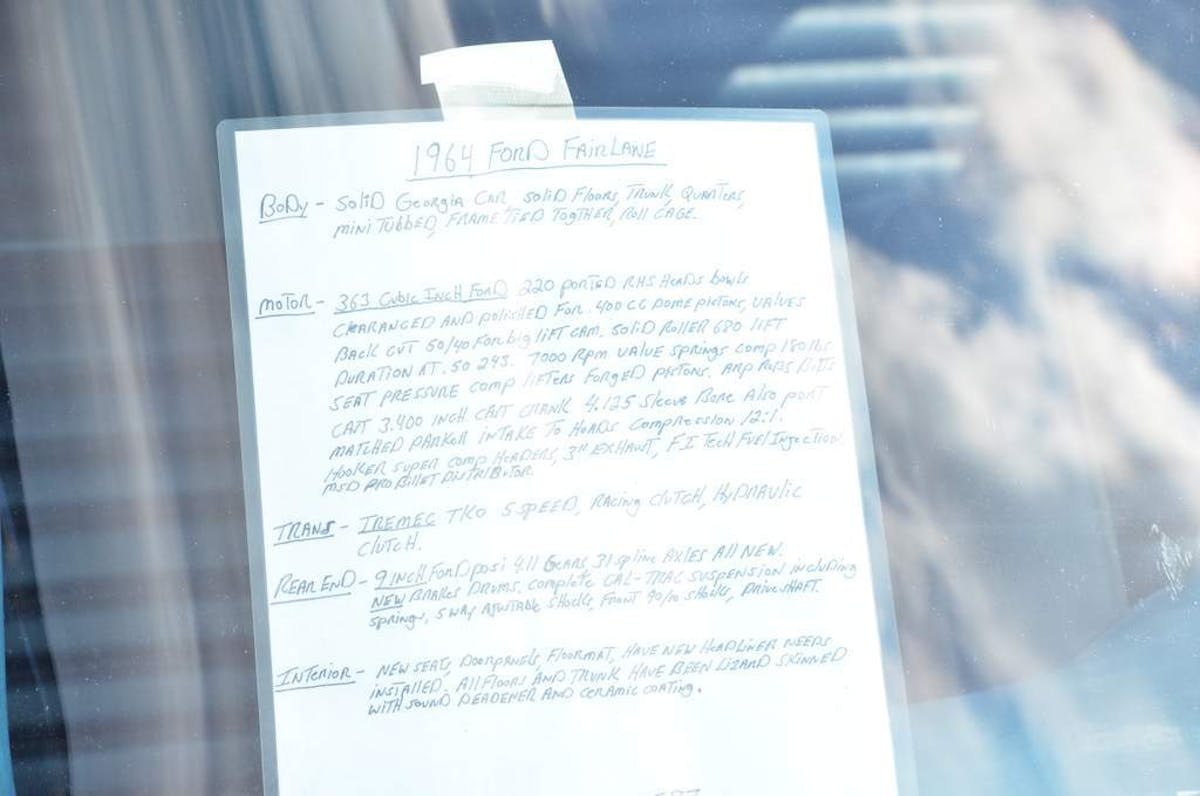 1964 FORD FAIRLANE
BODY - SOLID GEORGIA CAR SOLID FLOORS, TRUNK, QUARTERS,
MINI TUBBED, FRAME TIED TOGTHER, ROLL CAGE.
MOTOR - 363 CUBIC INCH FORD 220 PORTED RHS HEADS BOWLS
CLEARANCED AND POLISHED FOR .400 CC DOME PISTONS, VALUES
BACK CUT 50/40 FOR BIG LIFT CAM. SOLID ROLLER 680 LIFT
DURATION AT .50 243. 7000 RPM VALUE SPRINGS COMP 180 LBS
SEAT PRESSURE COMP LIFTERS FORGED PISTONS. ARP BOLTS
CAST 3.400 INCH CAST CRANK 4.125 SLEEVE BORE ALSO PORT
MATCHED PARKER INTAKE TO HEADS COMPRESSION 12:1.
HOOKER SUPER COMP HEADERS, 3" EXHAUST, F.I TECH FUEL INJECTION
MSD PRO BILLET DISTRIBUTOR
TRANS - TREMEC TKO 5 SPEED, RACING CLUTCH, HYDRAULIC
CLUTCH.
REAR END - 9 INCH FORD POSI 4.11 GEARS, 31 SPLINE AXLES ALL NEW.
NEW BRAKES DRUMS. COMPLETE CAL-TRAC SUSPENSION INCLUDING
SPRINGS, 5 WAY AJUSTABLE SHOCKS, FRONT 90/10 SHOCKS, DRIVE SHAFT.
INTERIOR - NEW SEATS, DOORPANELS, FLOORMAT, HAVE NEW HEADLINER NEEDS
INSTALLED. ALL FLOORS AND TRUNK HAVE BEEN LIZARD SKINNED
WITH SOUND DEADENER AND CERAMIC COATING.